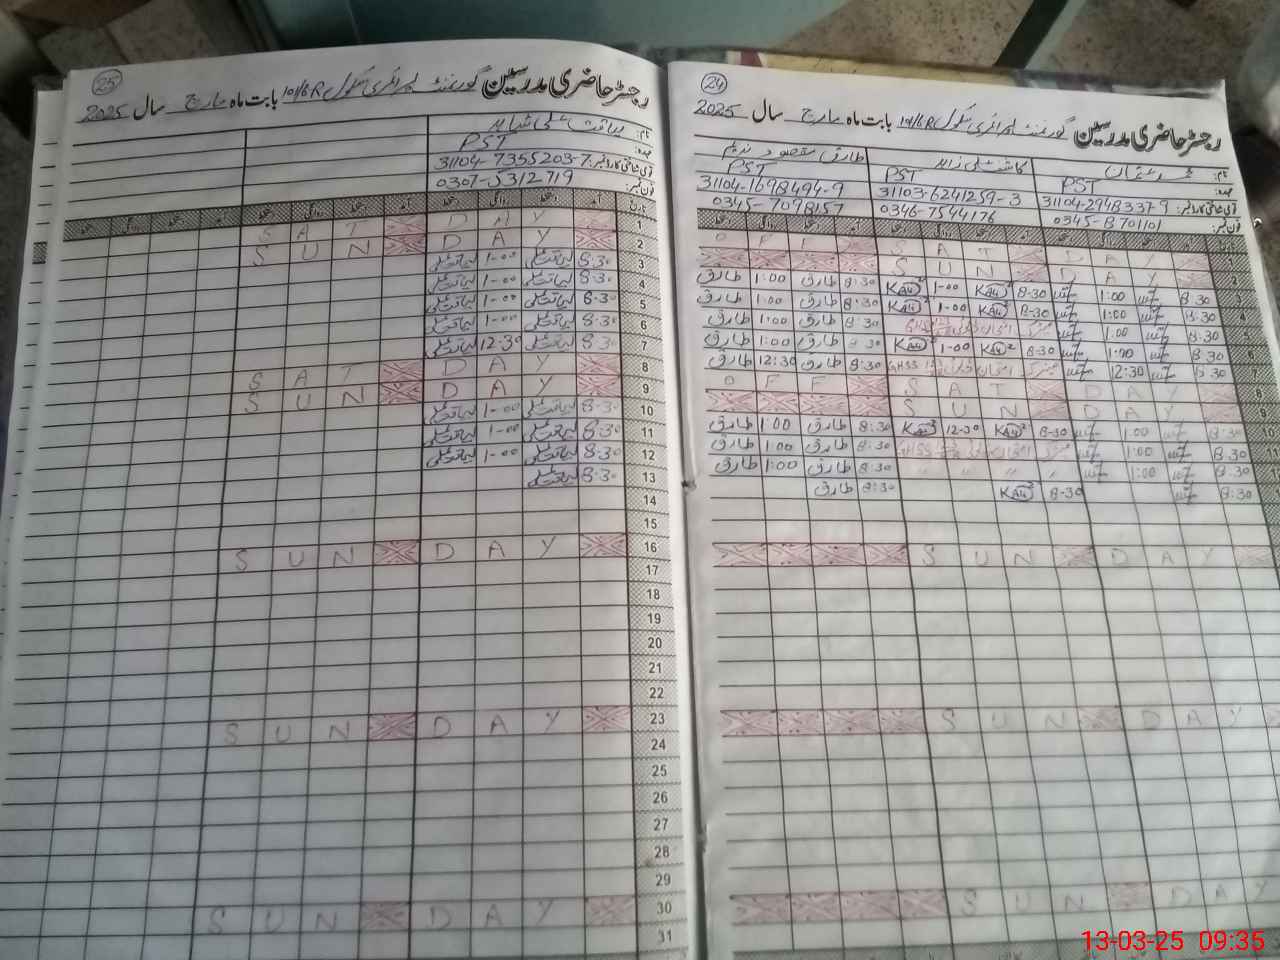 25
رجسٹر حاضری مدرسین گورنمنٹ پرائمری سکول 101/6R بابت ماہ مارچ سال 2025
نام: لیاقت علی شاہد
عہدہ: PST
قومی شناختی کارڈ نمبر: 31104-7355203-7
فون نمبر: 0307-5312719
تاریخ آمد دستخط روانگی دستخط آمد دستخط روانگی دستخط
1 SAT DAY
2 SUN DAY
3 8:30 لیاقت علی 1-00 لیاقت علی
4 8:30 لیاقت علی 1-00 لیاقت علی
5 8:30 لیاقت علی 1-00 لیاقت علی
6 8:30 لیاقت علی 1-00 لیاقت علی
7 8:30 لیاقت علی 12-30 لیاقت علی
8 SAT DAY
9 SUN DAY
10 8:30 لیاقت علی 1-00 لیاقت علی
11 8:30 لیاقت علی 1-00 لیاقت علی
12 8:30 لیاقت علی 1-00 لیاقت علی
13 8:30 لیاقت علی
14
15
16 SUN DAY
17
18
19
20
21
22
23 SUN DAY
24
25
26
27
28
29
30 SUN DAY
31
24
رجسٹر حاضری مدرسین گورنمنٹ پرائمری سکول 101/6R بابت ماہ مارچ سال 2025
نام: محمد عثمان کاشف علی زاہد طارق مقصود ندیم
عہدہ: PST PST PST
قومی شناختی کارڈ نمبر: 31104-2948337-9 31103-6241259-3 31104-1698494-9
فون نمبر: 0345-8701101 0346-7544176 0345-7098157
1 OFF SAT DAY
2 SUN DAY
3 8:30 1:00 8-30 1-00 8:30 طارق 1:00 طارق
4 8:30 1:00 8-30 1-00 8:30 طارق 1:00 طارق
5 8:30 1:00 GHSS 8:30 طارق 1:00 طارق
6 8:30 1:00 8-30 1-00 8:30 طارق 1:00 طارق
7 8:30 12:30 GHSS 8:30 طارق 12:30 طارق
8 OFF SAT DAY
9 SUN DAY
10 8:30 1:00 8-30 12-30 8:30 طارق 1:00 طارق
11 8:30 1:00 GHSS 8:30 طارق 1:00 طارق
8:30 1:00 " " " " 8:30 طارق 1:00 طارق
8:30 8-30 8:30 طارق
SUN DAY
SUN DAY
SUN DAY
13-03-25 09:35